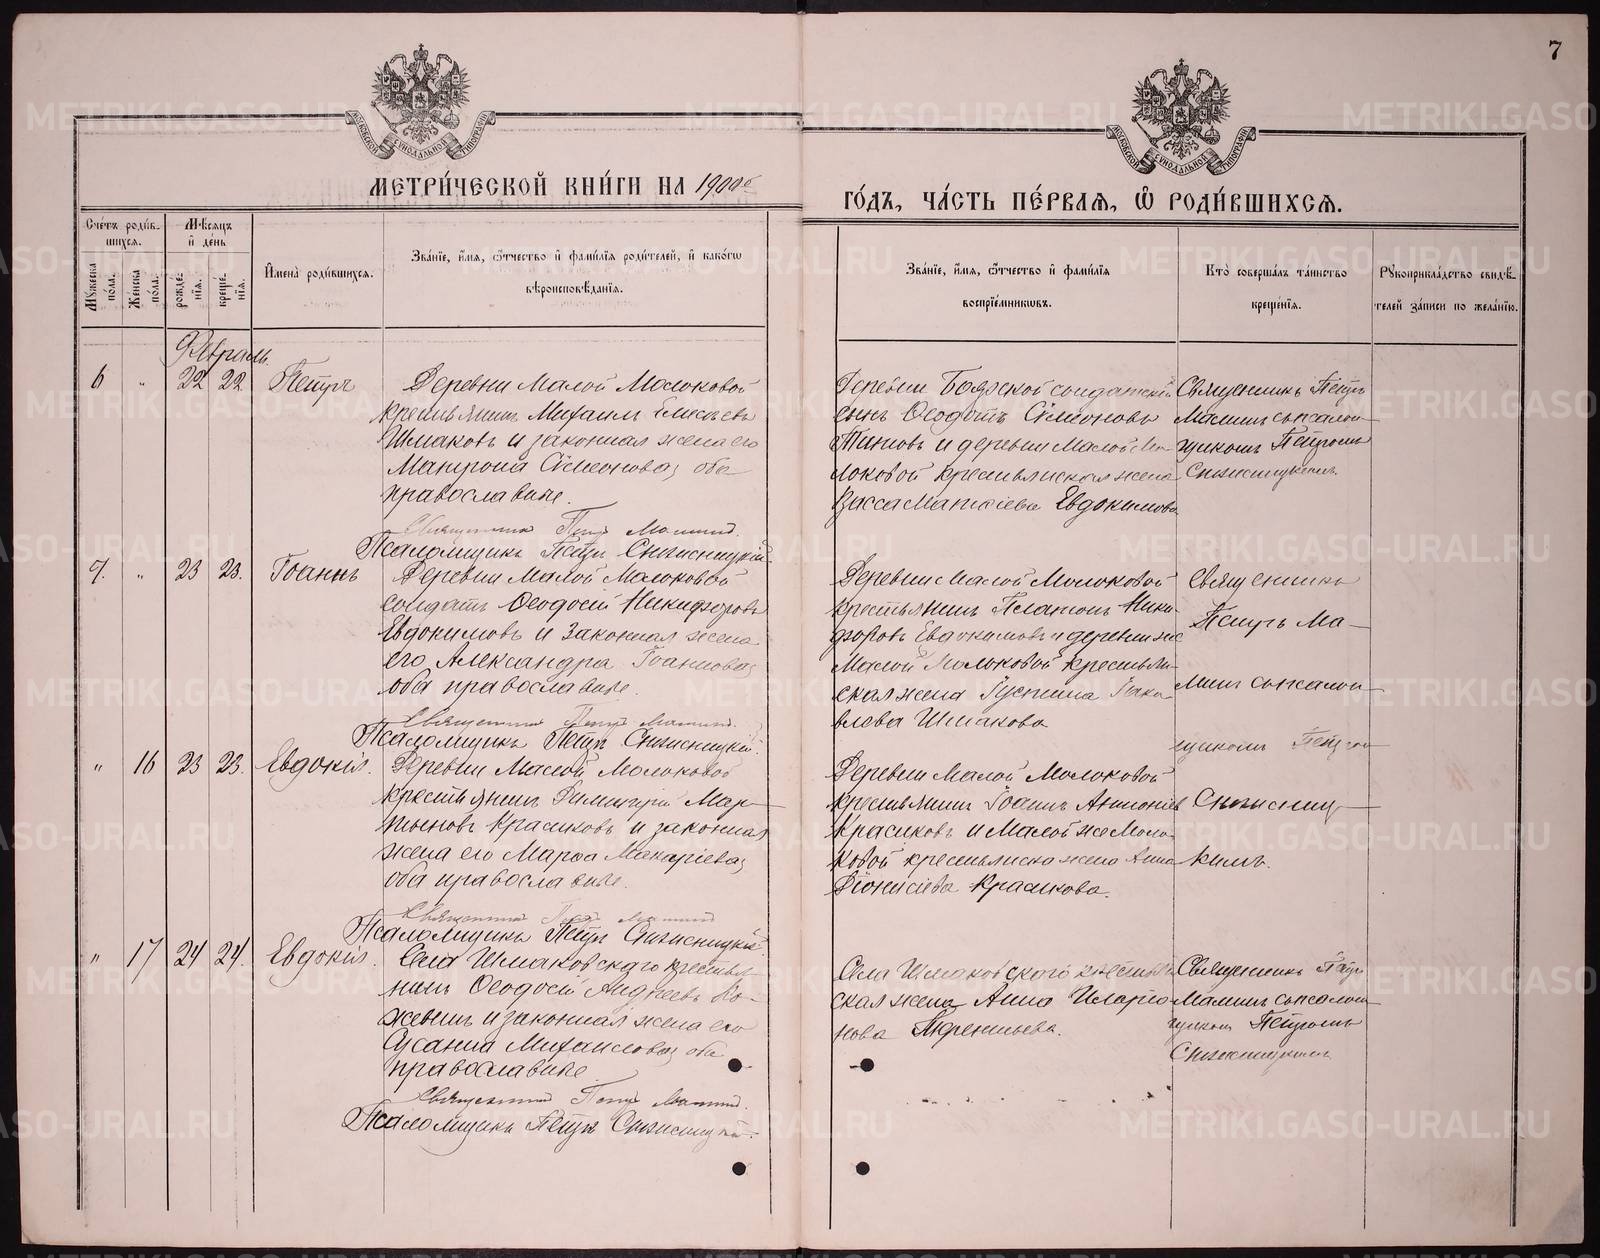 7
МЕТРИ́ЧЕСКОЙ КНИ́ГИ НА 1900й
ГО́ДЪ, ЧА́СТЬ ПЕ́РВАЯ, Ѡ҆ РОДИ́ВШИХСЯ.
МОСКОВСКОЙ СѴНОДАЛЬНОЙ ТИПОГРАФІИ
МОСКОВСКОЙ СѴНОДАЛЬНОЙ ТИПОГРАФІИ
Сче́тъ роди́в-
шихся.
Мꙋжеска по́ла.
Же́нска по́ла.
Мѣсяцъ
и҆ де́нь
рожде́-
нїя.
креще́-
нїя.
И҆мена̀ роди́вшихся.
Зва́нїе, и҆́мя, ѻ҆́тчество и҆ фами́лїя роди́телей, и҆ како́гѡ
вѣроисповѣ́данїя.
Зва́нїе, и҆́мя, ѻ҆́тчество и҆ фами́лїя
воспрїе́мникѡвъ.
Кто̀ соверша́лъ та́инство
креще́нїя.
Рꙋкоприкла́дство свидѣ́-
телей за́писи по жела́нїю.
Февраль.
6 " 22 22 Петръ
Деревни Малой Молоковой
крестьянинъ Михаилъ Елисѣевъ
Шмаковъ и законная жена его
Матрона Симеонова, оба
православные.
Священникъ Петръ Маминъ.
Псаломщикъ Петръ Снѣжницкій
Деревни Боярской солдатскій
сынъ Ѳеодотъ Симеоновъ
и деревни Малой Мо-
локовой крестьянская жена
Васса Матѳіева Евдокимова
Священникъ Петръ
Маминъ съ псалом-
щикомъ Петромъ
7. " 23 23. Іоаннъ
Деревни Малой Молоковой
солдатъ Ѳеодосій Никифоровъ
Евдокимовъ и законная жена
его Александра Іоаннова,
оба православные.
Священникъ Петръ Маминъ.
Псаломщикъ Петръ
Деревни Малой Молоковой
крестьянинъ Платонъ Ники-
форовъ Евдокимовъ и деревни же
Малой Молоковой крестьян-
ская жена Іустина Іако-
влева Шмакова
Священникъ
Петръ Ма-
минъ съ псалом-
щикомъ Петром
" 16 23 23. Евдокія.
Деревни Малой Молоковой
крестьянинъ Димитрій Мар-
тыновъ Красиковъ и законная
жена его Марѳа Макаріева,
оба православные.
Священникъ Петръ Маминъ
Псаломщикъ Петръ
Деревни Малой Молоковой
крестьянинъ Іоаннъ Антоніев
Красиковъ и Малой же Моло-
ковой крестьянска жена Анна
Діонисіева Красикова.
кимъ.
" 17 24 24. Евдокія.
Села Шмаковскаго крестья-
нинъ Ѳеодосій Андреевъ Ко-
жевинъ и законная жена его
Сусанна Михаилова, оба
православные.
Священникъ Петръ Маминъ.
Псаломщикъ Петръ
Села Шмаковского крестьян
ская жена Анна Иларіо
нова
Священникъ Петръ
Маминъ съ псалом-
щикомъ Петромъ